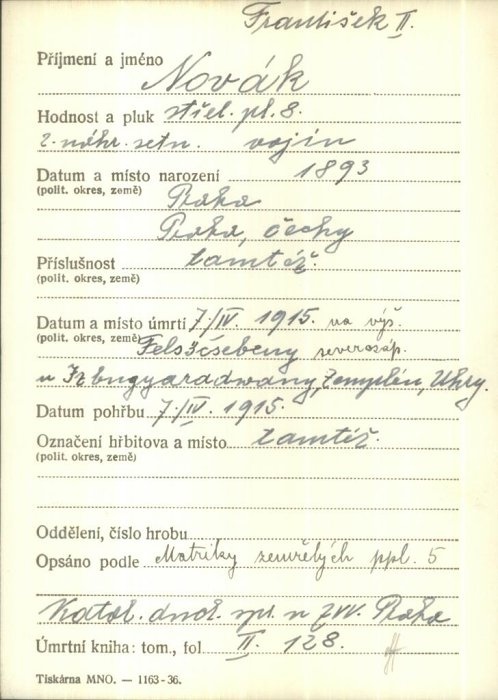 František II.
Příjmení a jméno
Novák
Hodnost a pluk střel. pl. 8.
2. náhr. setn. vojín
Datum a místo narození 1893
(polit. okres, země) Praha
Praha, Čechy
Příslušnost tamtéž.
(polit. okres, země)
Datum a místo úmrtí 7/IV. 1915. na výš.
(polit. okres, země) severozáp.
Zemplén, Uhry.
Datum pohřbu 7/IV. 1915.
Označení hřbitova a místo tamtéž.
(polit. okres, země)
Oddělení, číslo hrobu
Opsáno podle Matriky zemřelých ppl. 5
Praha
Úmrtní kniha: tom., fol II. 128.
Tiskárna MNO. — 1163-36.